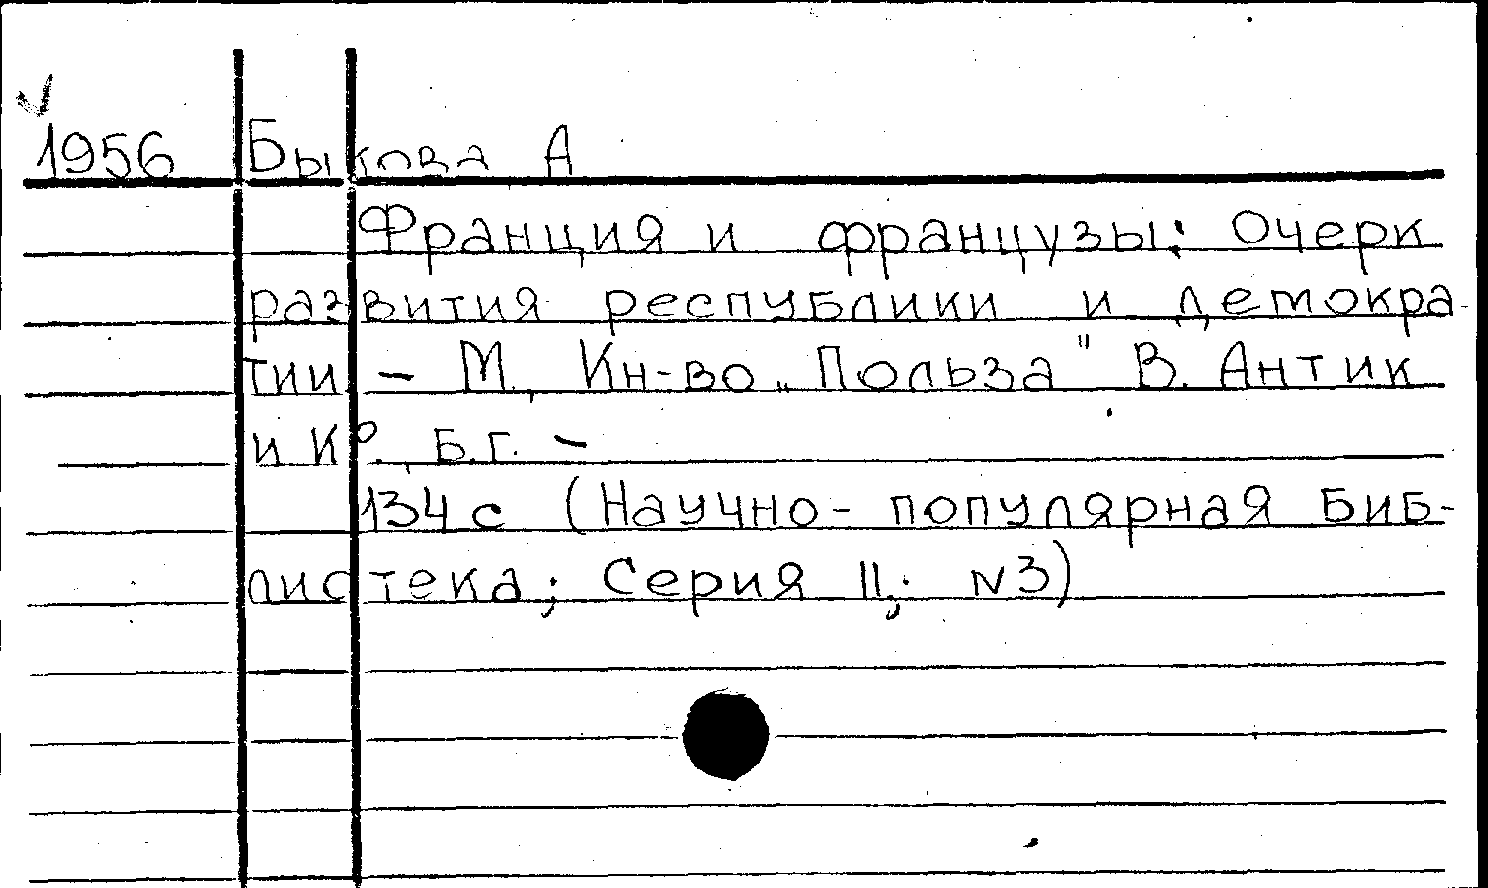 1956 Быкова А
Франция и французы: Очерк
развития республики и демокра-
тии - М, Кн-во „Польза" В. Антик
и Ко. Б.г. -
134 с (Научно-популярная биб-
лиотека; Серия II; N3)